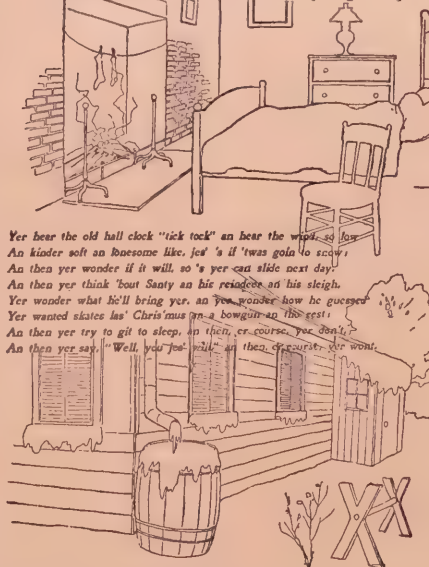 Yer hear the old hall clock "tick tock" an hear the wind, so low
An kinder soft an lonesome like, jes' 's if 'twas goin to snow;
An then yer wonder if it will, so 's yer can slide next day.
An then yer think 'bout Santy an his reindeer an his sleigh.
Yer wonder what he'll bring yer, an yer wonder how he guessed
Yer wanted skates las' Chris'mus an a bowgun an the rest;
An then yer try to git to sleep, an then, er course, yer don't,
An then yer say, "Well, you jes' will," an then, er course, yer wont.